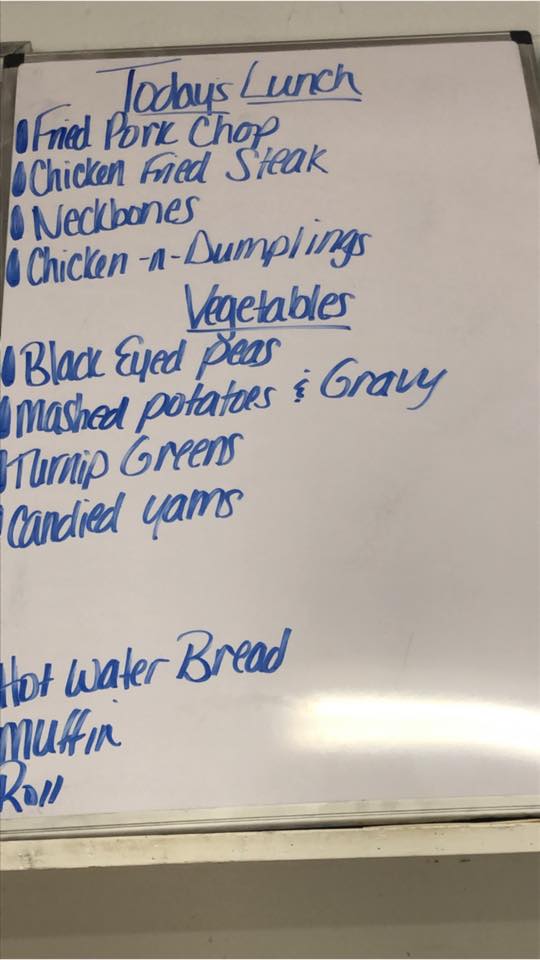 Todays Lunch
Fried Pork Chop
Chicken Fried Steak
Neckbones
Chicken-n-Dumplings
Vegetables
Black Eyed peas
Mashed potatoes & Gravy
Turnip Greens
Candied yams
Hot Water Bread
Muffin
Roll